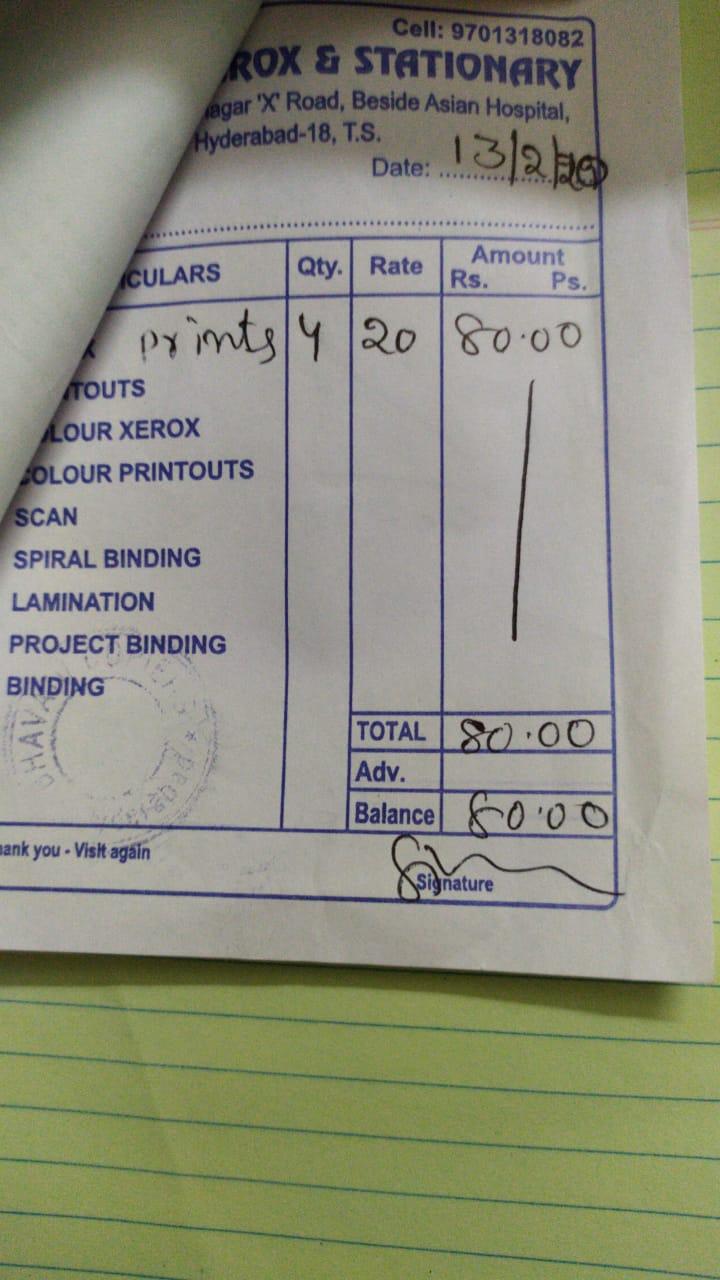 Cell: 9701318082
ROX & STATIONARY
agar 'X' Road, Beside Asian Hospital,
Hyderabad-18, T.S.
Date: 13/2/20
ICULARS Qty. Rate Amount
Rs. Ps.
X prints 4 20 80.00
TOUTS
LOUR XEROX
COLOUR PRINTOUTS
SCAN
SPIRAL BINDING
LAMINATION
PROJECT BINDING
BINDING
TOTAL 80.00
Adv.
Balance 80.00
ank you - Visit again
Signature